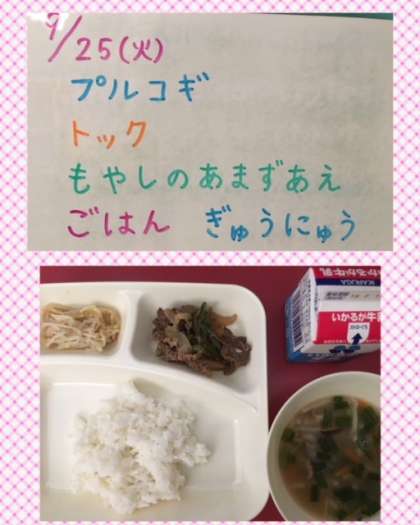 9/25(火)
プルコギ
トック
もやしのあまずあえ
ごはん ぎゅうにゅう
いかるが牛乳
IKARUGA
いかるが牛乳